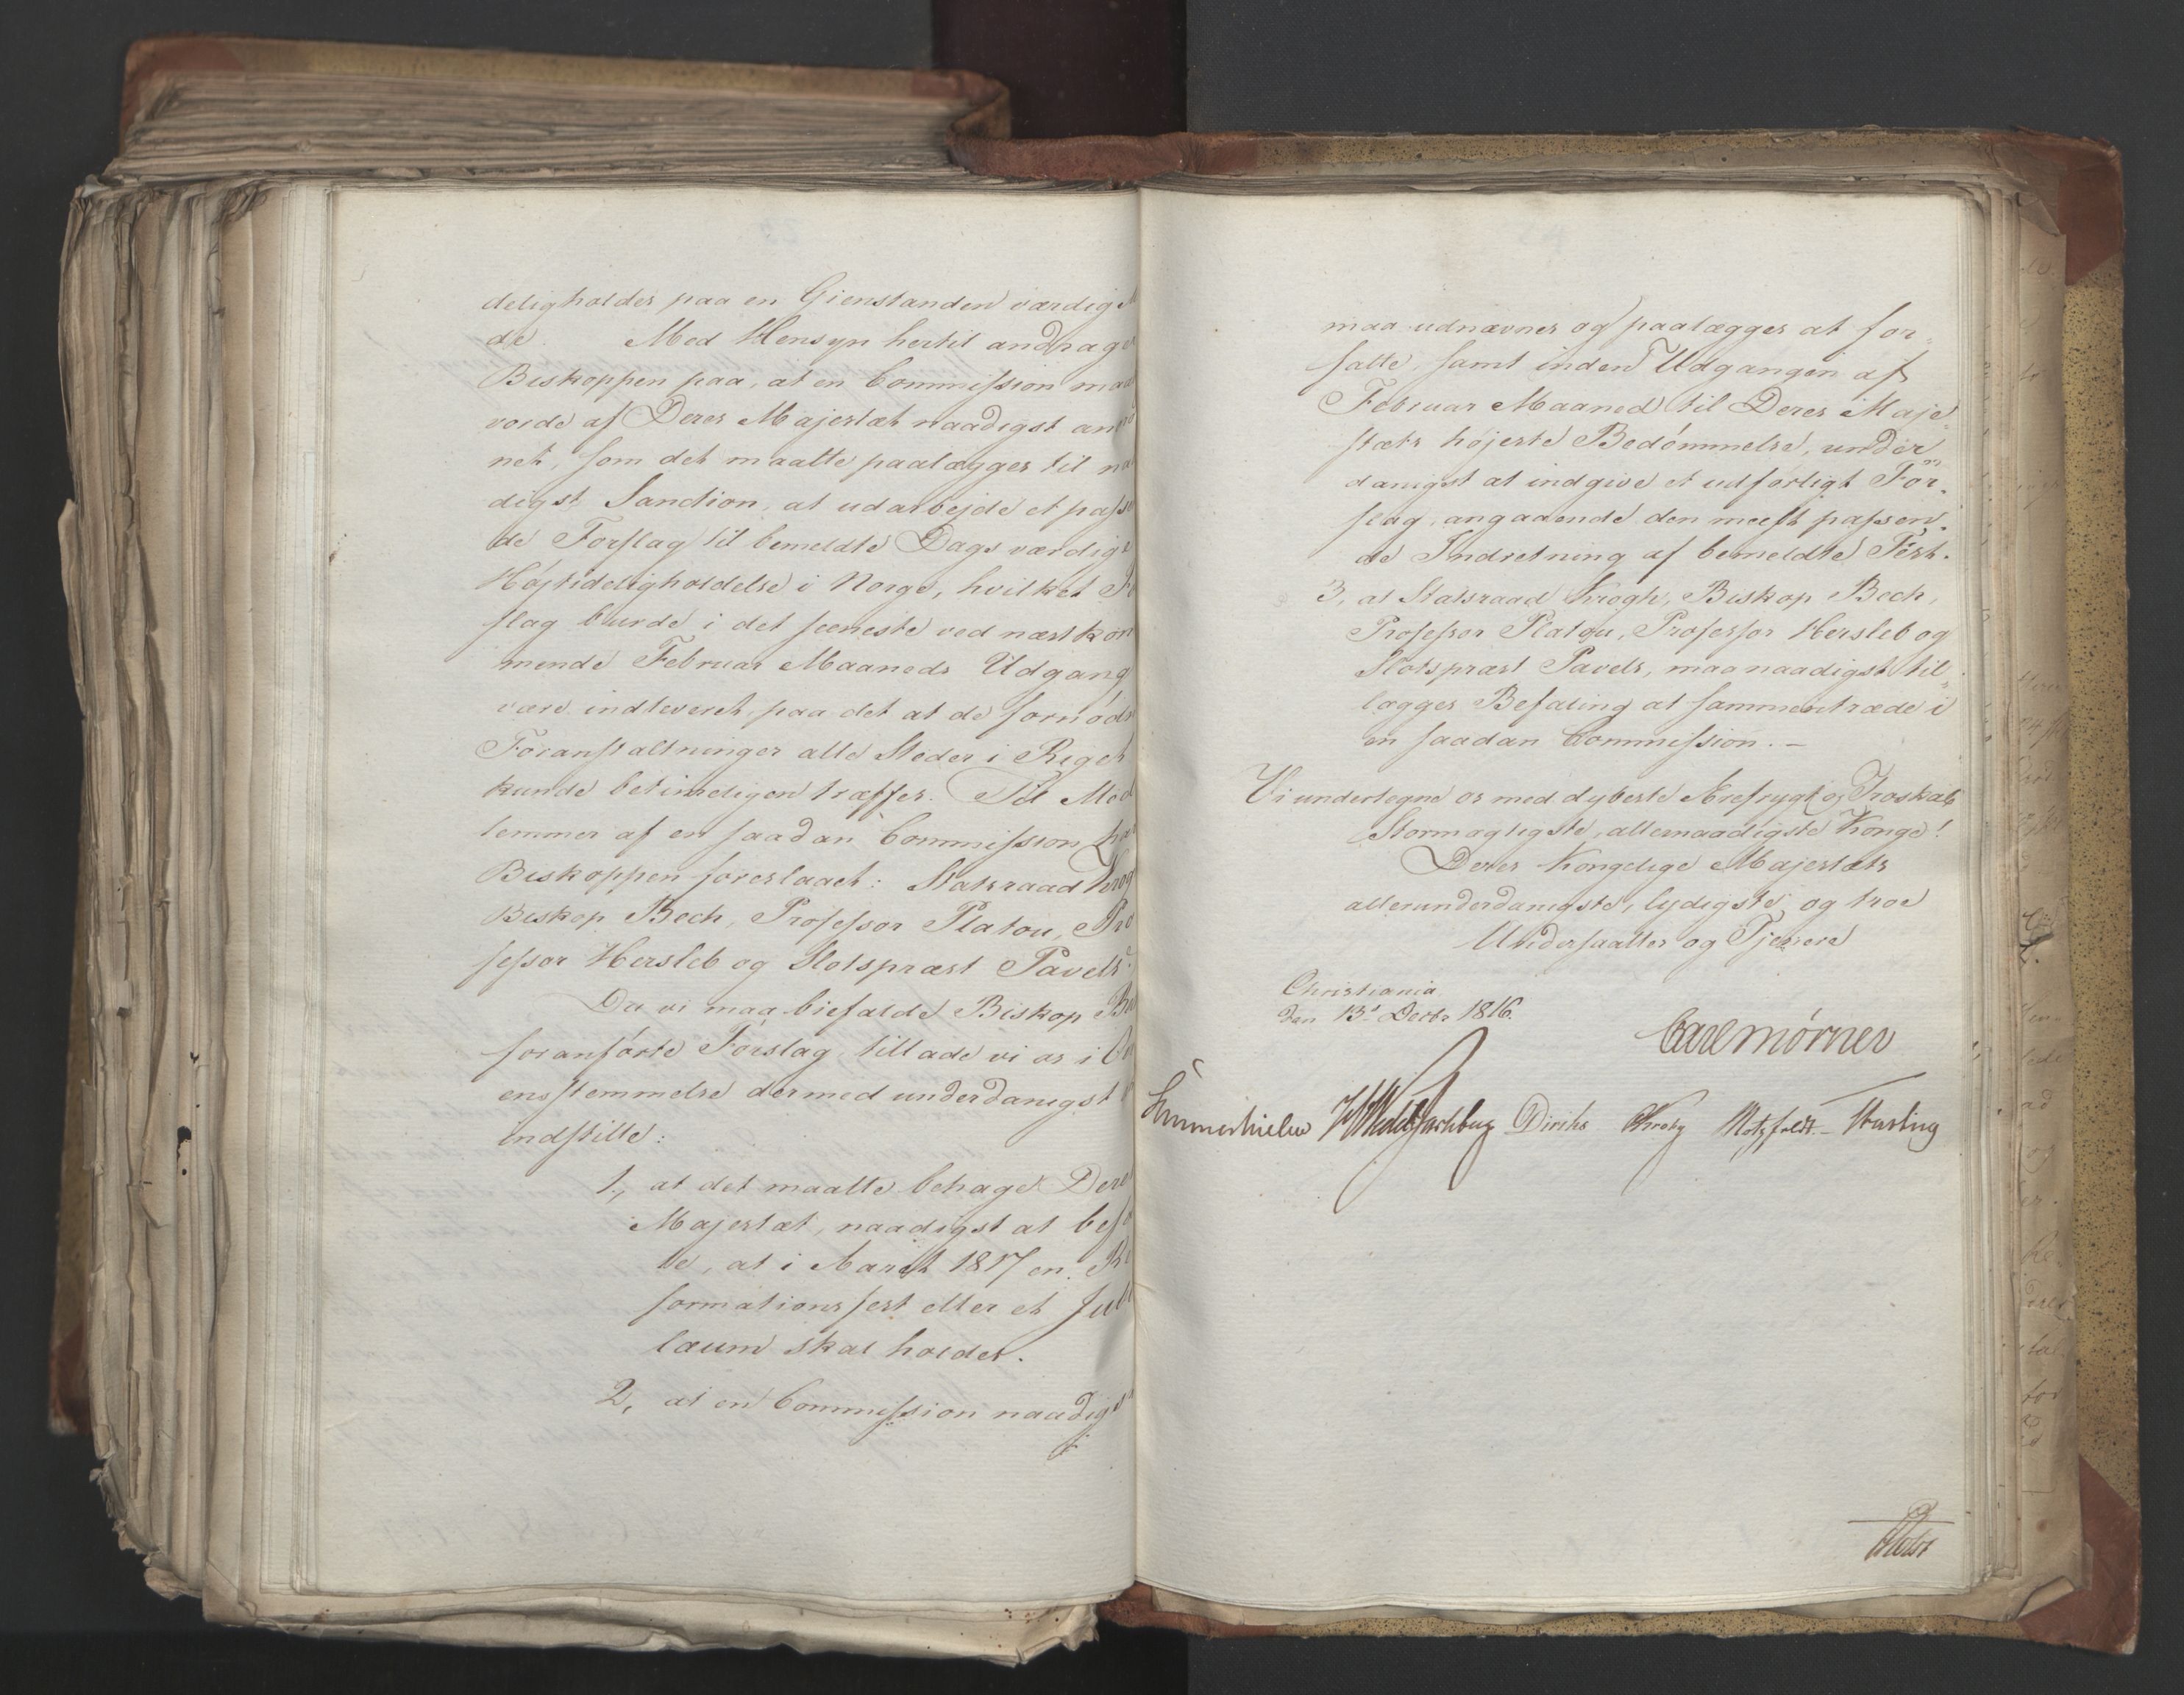 deligholdes paa en Gienstanden værdig M
de. Med Hensyn hertil andrage
Biskoppen paa, at en Commission maa
vorde af Deres Majestæt naadigst anord
net, som det maatte paalægges til na
digst Sanction, at udarbejde et passe
de Forslag til bemeldte Dags værdig
Højtideligholdelse i Norge, hvilket Fo
slag burde i det seeneste ved næstkom
mende Februar Maaneds Udgang
være indleveret, paa det at de fornødn
Foranstaltninger alle Steder i Riget
kunde betimeligen træffes. Til Med
lemmer af en saadan Commission har
Biskoppen foreslaaet: Statsraad Krog
Biskop Bech, Professor Platou, Pro
fessor Hersleb og Slotspræst Pavels.
Da vi maa biefalde Biskop
foranførte Forslag, tillade vi os i Ov
ensstemmelse dermed underdanigst
indstille:
1, at det maatte behage Dere
Majestæt, naadigst at befa
le, at i Aaret 1817 en Re
formationsfest eller et Jubi
læum skal holdes.
2, at en Commission naadigst
maa udnævnes og paalægges at for-
fatte, samt inden Udgangen af
Februar Maaned til Deres Maje-
stæts højeste Bedømmelse, under-
danigst at indgive et udførligt For-
slag, angaaende den meest passen-
de Indretning af bemeldte Fest.
3, at Statsraad Krogh, Biskop Bech,
Professor Platou, Professor Hersleb og
Slotspræst Pavels, maa naadigst til-
lægges Befaling at sammentræde i
en saadan Commission. -
Vi undertegne os med dybeste Ærefrygt og Troskab
Stormægtigste, allernaadigste Konge!
Deres Kongelige Majestæts
allerunderdanigste, lydigste og troe
Undersaatter og Tjenere
Christiania
den 13d Decbr 1816.
Carl Mörner
Sommerhielm Wedel Jarlsberg Diriks Krogh Motzfeldt - Hasting